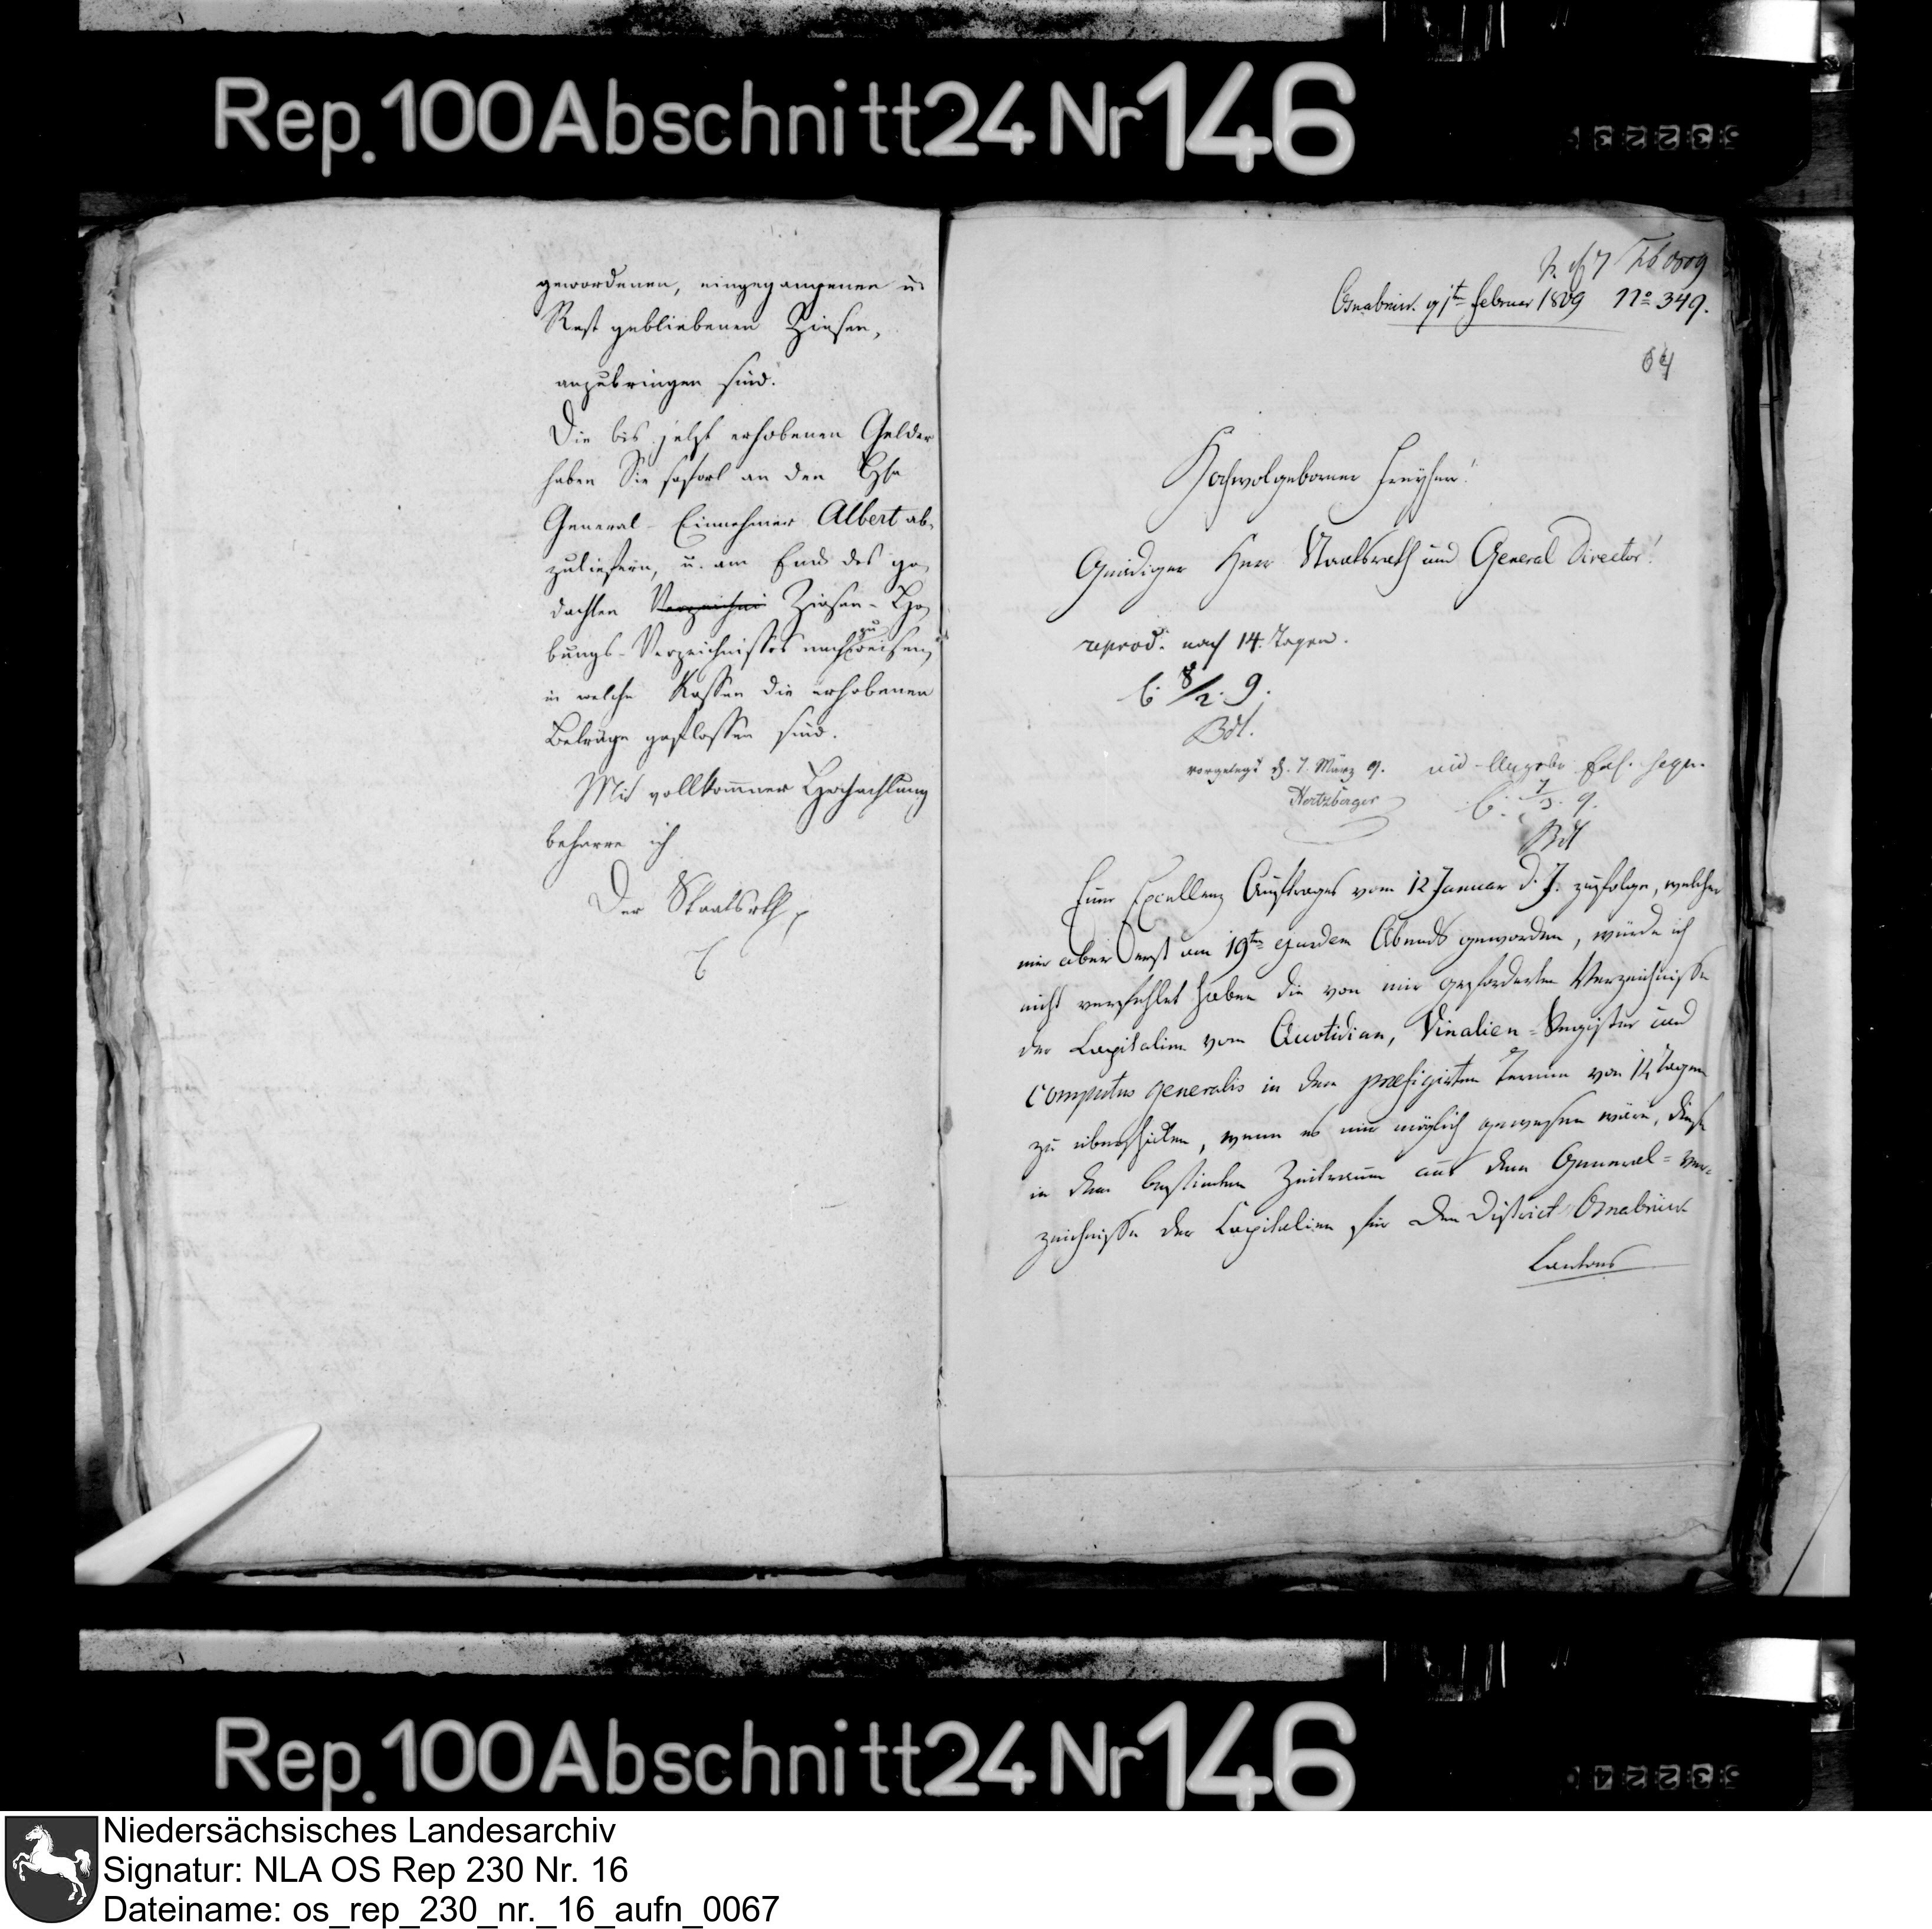 Rep. 100 Abschnitt 24 Nr 146
gewordenen, eingegangenen u.
Rest gebliebenen Zinsen,
anzubringen sind.
Die bis jetzt erhobenen Gelder
haben Sie sofort an den
General-Einnehmer Albert ab-
zuliefern, u. am Ende des ge-
dachten Verzeichni Zinsen-He-
bungs-Verzeichnisses nachzuweisen,
in welche Kassen die erhobenen
Beträge geflossen sind.
Mit vollkommner Hochachtung
beharre ich
Der Staatsrath
Osnabrück februar 1809 No 349.
64
Hochwolgeborner Freyherr!
Gnädiger Herr Staatsrath und General Director!
reprod. nach 14. Tagen.
8/2. 9.
Bdt.
vorgelegt d. 7. März 9.
Hertzberger
7/3. 9.
Bdt
Euer Excellenz Auftrages vom 12 Januar d. J. zufolge, welcher
mir aber erst am 19ten ejusdem Abends geworden, würde ich
nicht verfehlet haben die von mir geforderten Verzeichnisse
der Capitalien vom Quotidian, Vinalien-Register und
Computus generalis in dem praefigirten Termin von 14 Tagen
zu überschicken, wenn es mir möglich gewesen wäre, diese
in dem bestimten Zeitraum aus dem General-Ver-
zeichnisse der Capitalien für den District Osnabrück
Cantons
Rep. 100 Abschnitt 24 Nr 146
Niedersächsisches Landesarchiv
Signatur: NLA OS Rep 230 Nr. 16
Dateiname: os_rep_230_nr._16_aufn_0067